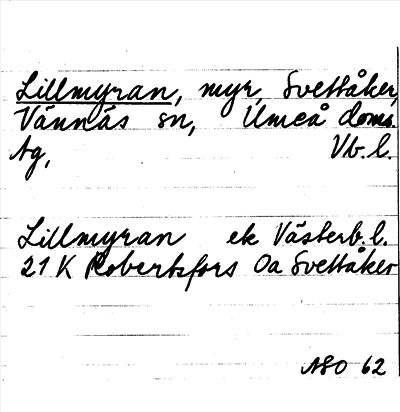 Lillmyran, myr, Svettåker,
Vännäs sn, Umeå doms.
tg, Vb.l.
Lillmyran ek Västerb.l.
21 K Robertsfors Oa Svettåker
ASO 62